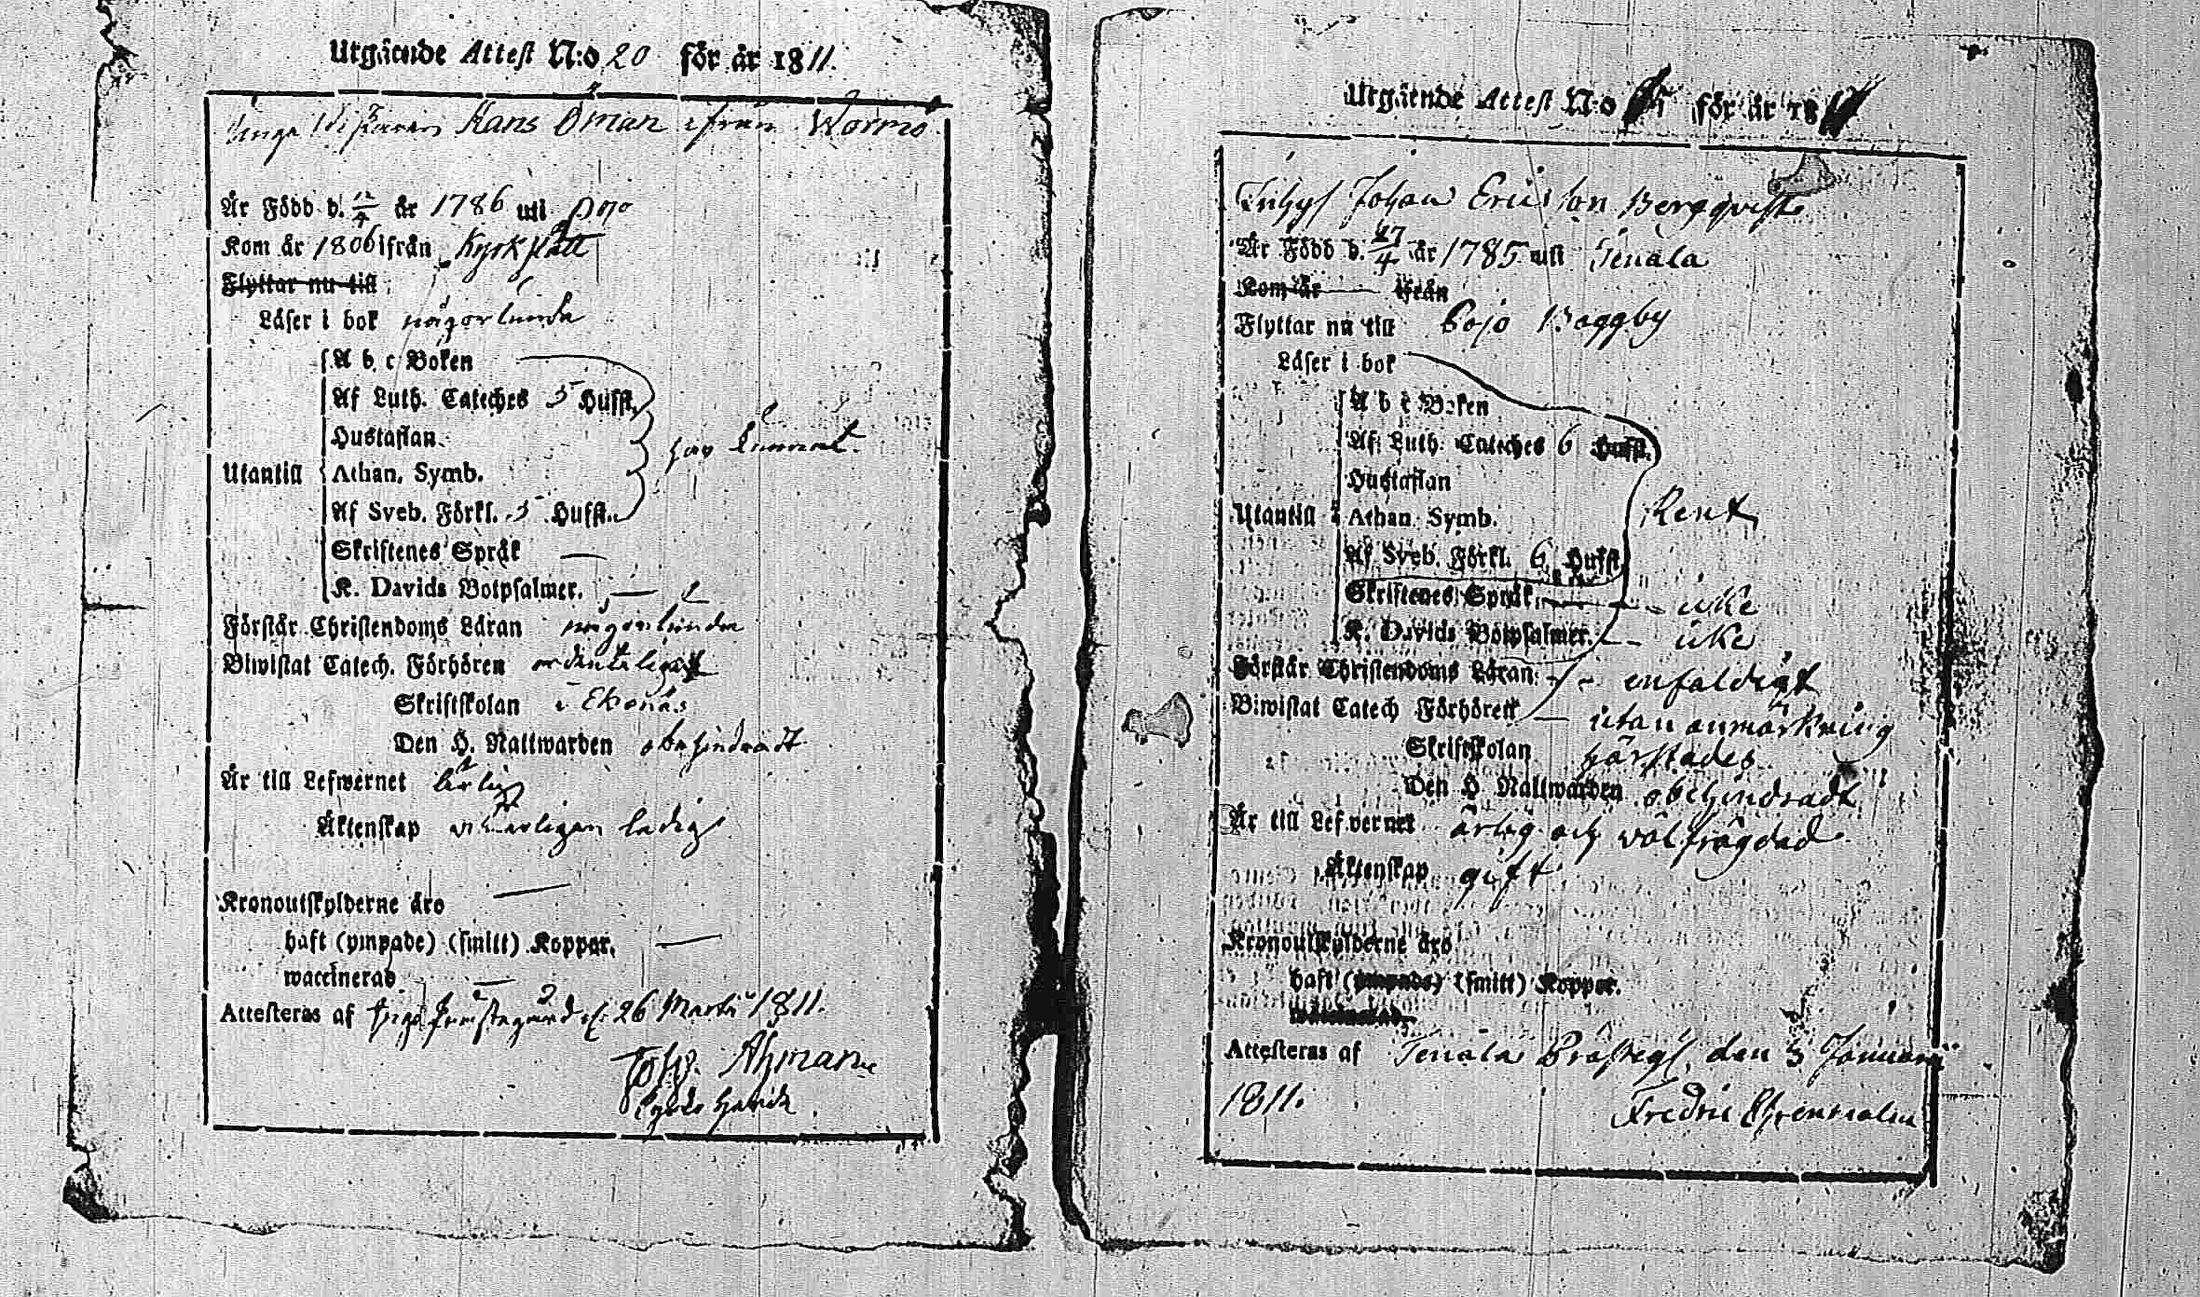 Utgående Attest N:o 20 för år 1811.
Hans Öman ifrån Wormö
Är Född d. 12/4 år 1786 uti Pojo
Kom år 1806 ifrån Kyrkslätt
Flyttar nu till
Läser i bok någorlunda
A b c Boken
Af Luth. Cateches 5 Hufst.
Hustaflan
har lärt
Utantill Athan. Symb.
Af Sveb. Förkl. 5 Hufst.
Skriftenes Språk —
K. Davids Botpsalmer. —
Förstår Christendoms Läran någorlunda
Biwistat Catech. Förhören ordenteligast
Skriftskolan i Ekenäs
Den H. Nattwarden obehindradt
Är till Lefwernet ärlig
Äktenskap ledig
Kronoutskylderne äro —
haft (ympade) (smitt) Koppor. —
waccinerad —
Attesteras af Ingå Prestegård d. 26 Martii 1811.
Joh. Åhman
Kyrko Herde
Utgående Attest N:o för år 18
Johan Ericsson Bergqvist
Är Född d. 27/4 år 1785 uti Tenala
Kom år ifrån
Flyttar nu till Pojo Baggby
Läser i bok
A b c Boken
Af Luth. Cateches 6 Hufst.
Hustaflan
Utantill Athan. Symb. Rent
Af Sveb. Förkl. 6 Hufst.
Skriftenes Språk — icke
K. Davids Botpsalmer. — icke
Förstår Christendoms Läran — enfaldigt
Biwistat Catech Förhören — utan anmärkning
Skriftskolan härstädes
Den H Nattwarden obehindradt
Är till Lefwernet ärlig och välfrägdad
Äktenskap gift
Kronoutskylderne äro
haft (ympade) (smitt) Koppor.
waccinerad
Attesteras af Tenala Prästegd. den 3 Januarii
1811. Fredric Ehrenmalm